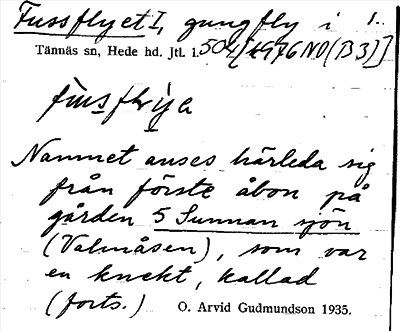 Fussflyet I, gungfly i 1.
Tännäs sn, Hede hd. Jtl. 1. 504 [1976 NO (B3)]
Nammet anses härleda sig
från förste åbon på
gården 5 Sunnan sjön
(Valmåsen), som var
en knekt, kallad
(forts.) O. Arvid Gudmundson 1935.